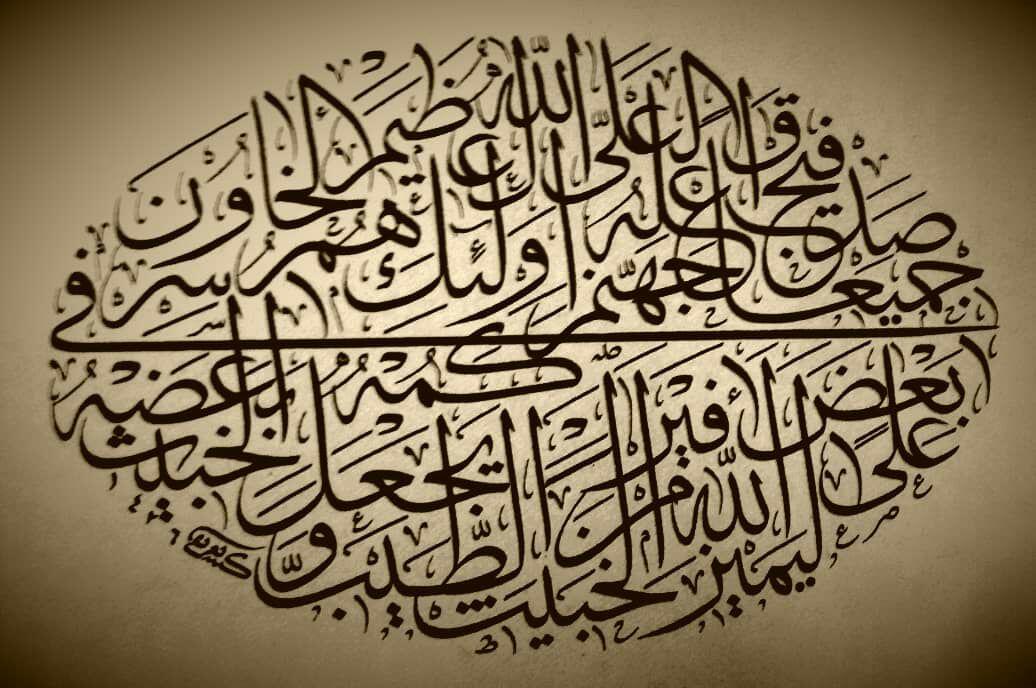 ليميز الله الخبيث من الطيب ويجعل الخبيث
بعضه على بعض فيركمه
جميعا فيجعله في جهنم أولئك هم الخاسرون
صدق الله العلي العظيم